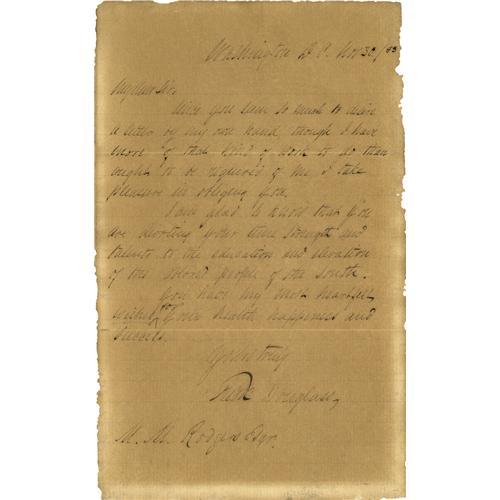 Washington D.C. Nov 30/83
My dear Sir:
Since you seem so much to desire
a letter by my own hand, though I have
more of that kind of work to do than
ought to be required of me I take
pleasure in obliging you.
I am glad to know that you
are devoting your time strength and
talents to the education and elevation
of the colored people of the South.
You have my most heartfelt
wishes for your health happiness and
success.
Yours truly
Fredk Douglass,
M. M. Rodgers Esqr.